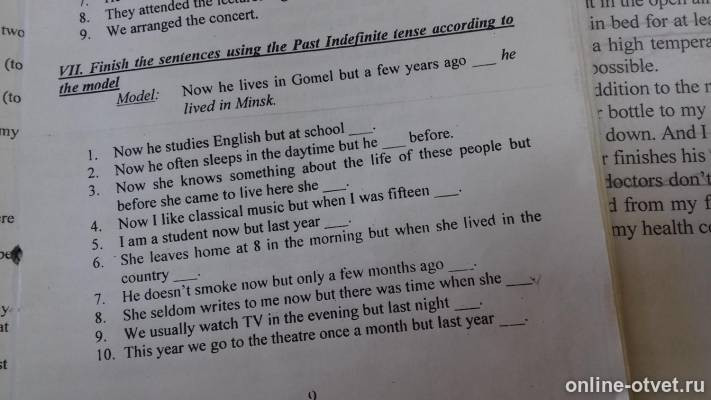 8. They attended the
9. We arranged the concert.
VII. Finish the sentences using the Past Indefinite tense according to
the model
Model: Now he lives in Gomel but a few years ago ____ he
lived in Minsk.
1. Now he studies English but at school ____.
2. Now he often sleeps in the daytime but he ____ before.
3. Now she knows something about the life of these people but
before she came to live here she ____.
4. Now I like classical music but when I was fifteen ____.
5. I am a student now but last year ____.
6. She leaves home at 8 in the morning but when she lived in the
country ____.
7. He doesn't smoke now but only a few months ago ____.
8. She seldom writes to me now but there was time when she ____.
9. We usually watch TV in the evening but last night ____.
10. This year we go to the theatre once a month but last year ____.
9
two
(to
(to
my
in bed for at
a high
possible.
ddition to the
bottle to my
down. And I
finishes his
doctors don't
from my
my health
online-otvet.ru